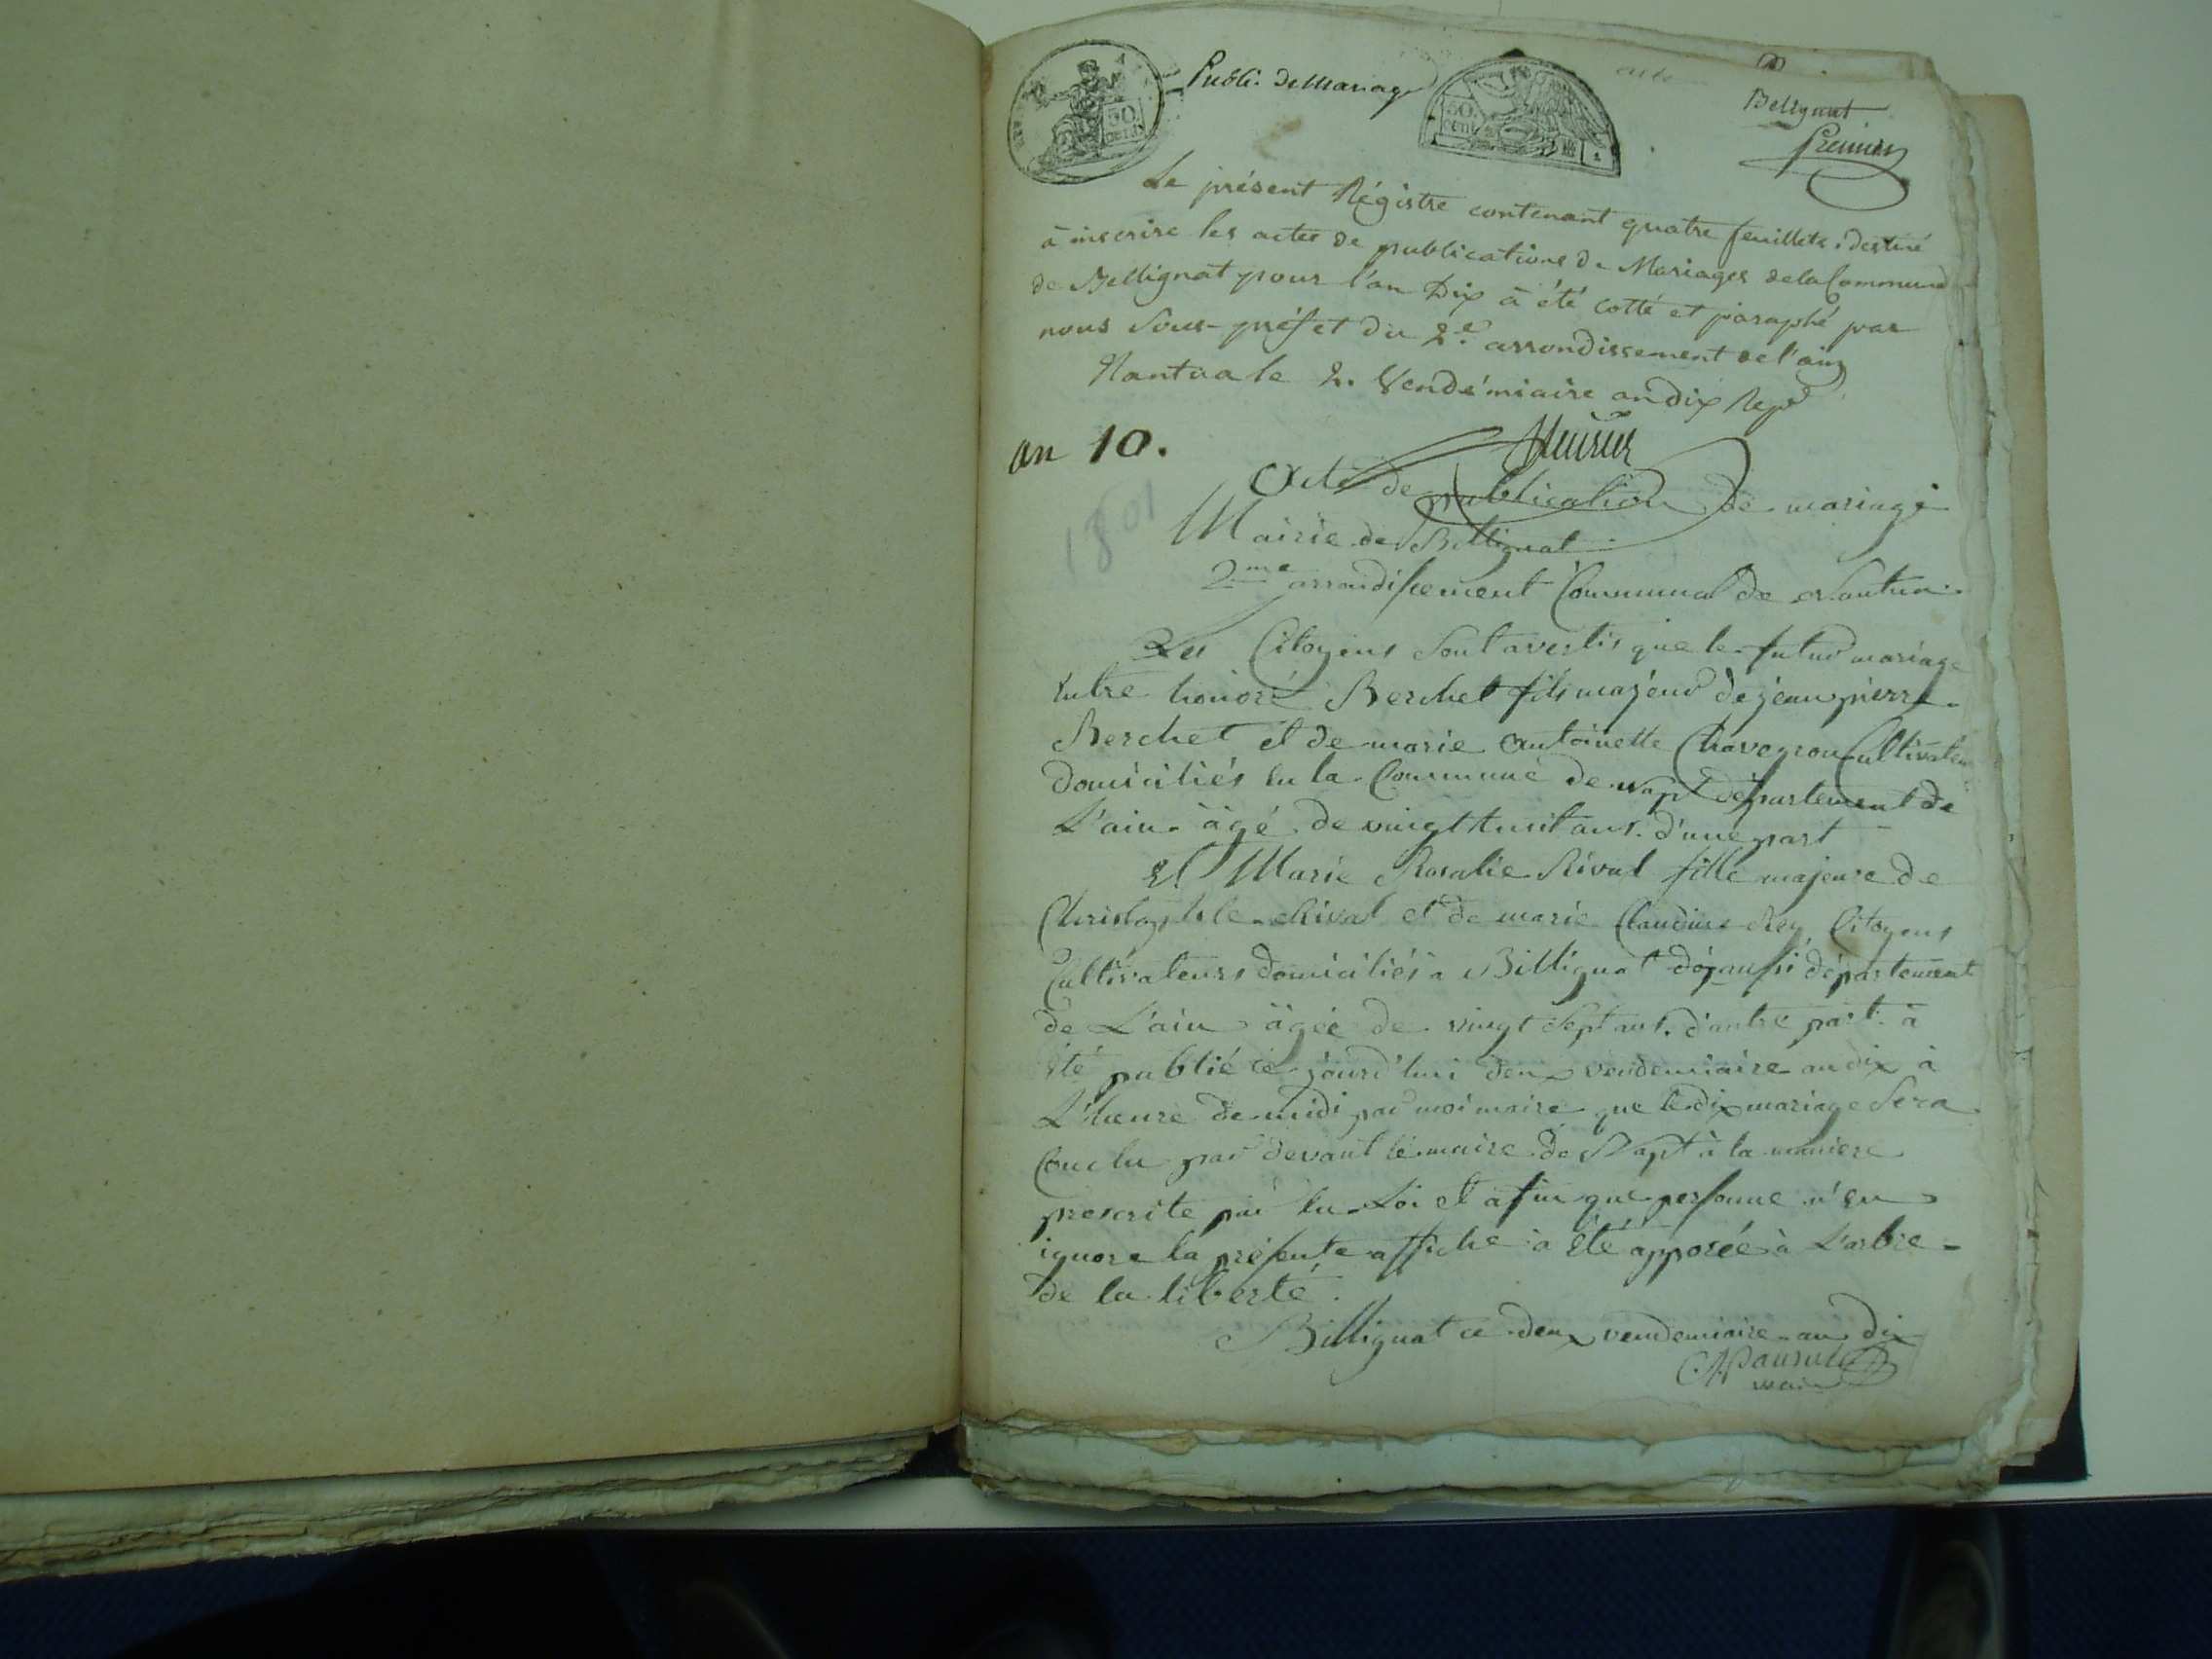 Publi. de Mariage
50. cent.
50. cent
Bellignat
premier
Le présent Régistre contenant quatre feuillets, destiné
à inscrire les actes de publications de Mariages de la Commune
de Bellignat pour l'an Dix à été cotté et paraphé par
nous Sous-préfet du 2e. arrondissement de l'ain
Nantua le 2. Vendémiaire an dix Repd
an 10.
1801
Acte de publication de mariage
Mairie de Bellignat
2me arrondissement Communal de Nantua
Les Citoyens Sont avertis que le futur mariage
Entre honoré Berchet fils majeur de jean pierre
Berchet et de marie antoinette Chaveyron Cultivateurs
domiciliés en la Commune de napt département de
L'ain âgé de vingt huit ans. d'une part
Et Marie Rosalie Rival fille majeure de
Christophle Rival et de marie Claudine Rey Citoyens
Cultivateurs domiciliés à Bellignat aussi département
de L'ain âgée de vingt Sept ans. d'autre part. à
été publié ce jourd'hui deux vendemiaire an dix à
L'heure de midi par moi maire que le dix mariage Sera
Conclu par devant le maire de Napt à la maniere
prescrite par la Loi et afin que personne n'en
ignore la présente affiche à été apposée à L'arbre
de la liberté.
Billignat ce deux vendemiaire an dix
maire